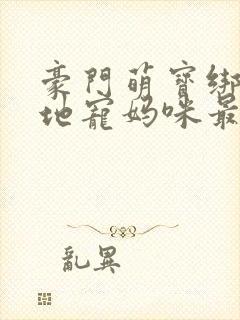 豪門萌寶綁
地寵媽咪最
亂異